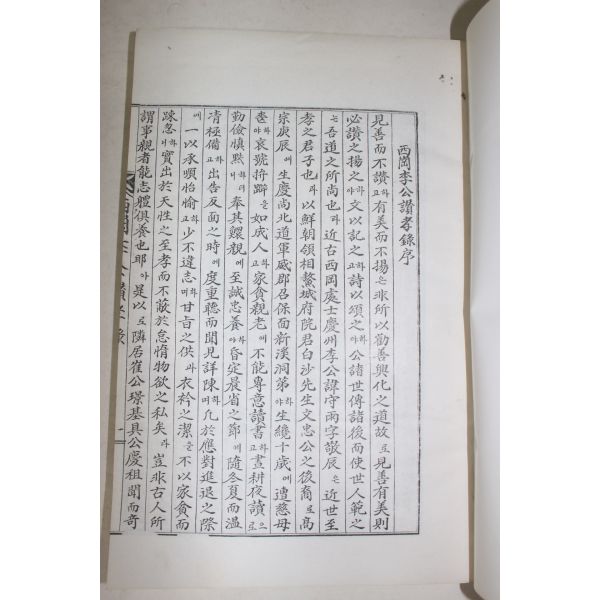 西岡李公讚孝錄序
見善而不讚하고有美而不揚는非所以勸善興化之道故로見善有美則
必讚之揚之하야文以記之하고詩以頌之하야公諸世傳諸後而使世人範之
는吾道之所尚也라近古西岡處士慶州李公諱守兩字敬辰은近世至
孝之君子也라以鮮朝領相鰲城府院君白沙先生文忠公之後裔로高
宗庚辰에生慶尚北道軍威郡召保面新溪洞第하야生纔十歲에遭慈母
喪하야哀號擗踊을如成人하고家貧親老에不能專意讀書하고晝耕夜讀으로
勤儉愼默하더니奉其鰥親에至誠忠養하야昏定晨省之節에隨冬夏而溫
凊極備하고出告反面之時에度重聽而聞見詳陳하며凡於應對進退之際
에一以承順怡愉하고少不違志하며甘旨之供과衣衿之潔을不以家貧而
疎忽하니實出於天性之至孝而不蔽於怠惰物欲之私矣라豈非古人所
謂事親者能志體俱養也耶아是以로隣居崔公璟基具公慶祖聞而奇
西岡李公讚孝錄
一